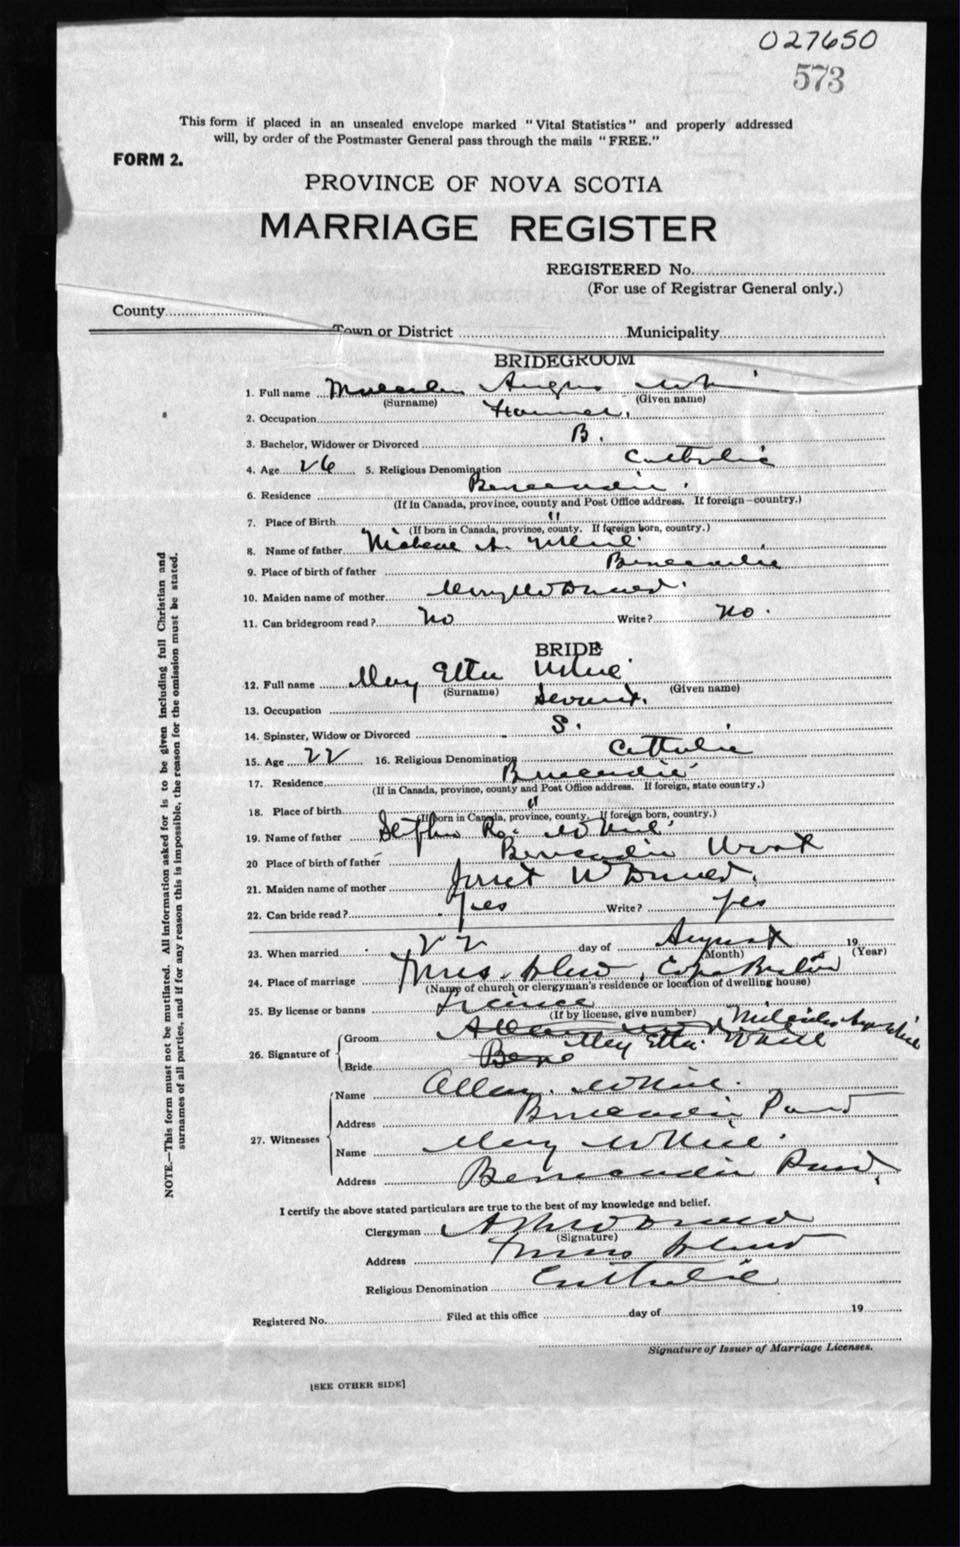 027650
573
This form if placed in an unsealed envelope marked "Vital Statistics" and properly addressed
will, by order of the Postmaster General pass through the mails "FREE."
FORM 2.
PROVINCE OF NOVA SCOTIA
MARRIAGE REGISTER
REGISTERED No.
(For use of Registrar General only.)
County
Town or District Municipality
BRIDEGROOM
1. Full name Malcolm Angus
(Surname) (Given name)
2. Occupation
3. Bachelor, Widower or Divorced B.
4. Age 26 5. Religious Denomination Catholic
6. Residence Benacadie
(If in Canada, province, county and Post Office address. If foreign—country.)
7. Place of Birth "
(If born in Canada, province, county. If foreign born, country.)
8. Name of father A. McNeil
9. Place of birth of father Benacadie
10. Maiden name of mother Mary McDonald
11. Can bridegroom read? No Write? No.
BRIDE
12. Full name Mary Etta McNeil
(Surname) (Given name)
13. Occupation Servant.
14. Spinster, Widow or Divorced S.
15. Age 22 16. Religious Denomination Catholic
17. Residence Benacadie
(If in Canada, province, county and Post Office address. If foreign, state country.)
18. Place of birth "
(If born in Canada, province, county. If foreign born, country.)
19. Name of father Stephen McNeil
20 Place of birth of father Benacadie West
21. Maiden name of mother Janet McDonald,
22. Can bride read? yes Write? yes
23. When married 22 day of August 19 (Year)
(Month)
24. Place of marriage Island, Cape Breton
(Name of church or clergyman's residence or location of dwelling house)
25. By license or banns Licence
(If by license, give number)
26. Signature of
Groom
Mary Etta
Bride
27. Witnesses
Name Allan McNeil.
Address Benacadie Pond
Name Mary McNeil.
Address Benacadie Pond,
I certify the above stated particulars are true to the best of my knowledge and belief.
Clergyman McDonald
(Signature)
Address Island
Religious Denomination Catholic
Registered No. Filed at this office day of 19
Signature of Issuer of Marriage Licenses.
[SEE OTHER SIDE]
NOTE.—This form must not be mutilated. All information asked for is to be given including full Christian and
surnames of all parties, and if for any reason this is impossible, the reason for the omission must be stated.